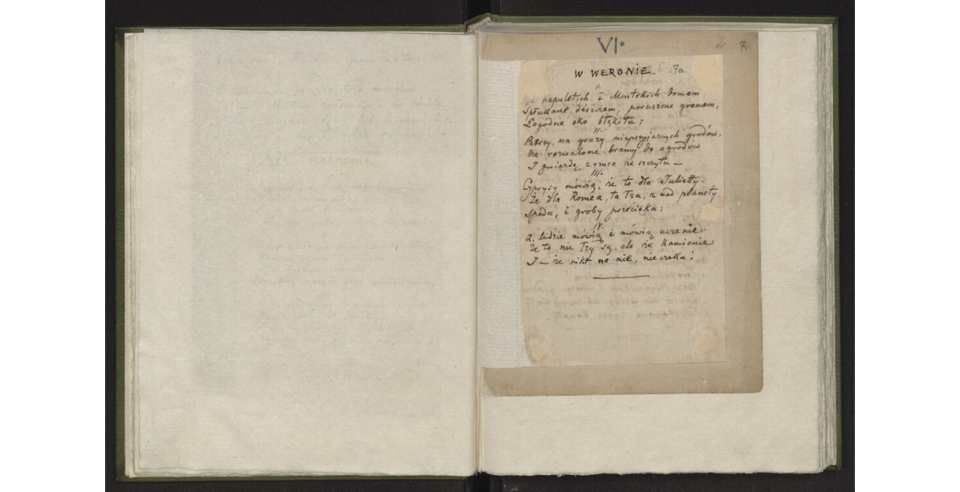 VI.
7.
W WERONIE 7a.
I.
Kapuletich i Montekich domem
Spłukane deszczem, poruszone gromem,
Łagodne oko błękitu;
II.
Patrzy na gruzy nieprzyjaznych grodów,
Na rozwalone bramy do ogrodów
I gwiazdę zrzuca ze szczytu –
III.
Cyprysy mówią, że to dla Julietty,
Że dla Romea, ta łza, z nad planety
Spada, i groby przecieka:
IV.
A ludzie mówią i mówią uczenie
Że to nie łzy są, ale że kamienie
I – że nikt na nie, nie czeka!